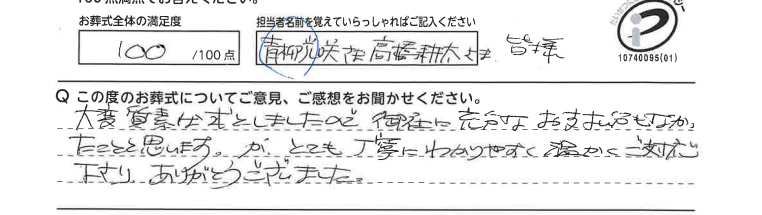 お葬式全体の満足度
担当者名前を覚えていらっしゃればご記入ください
100 /100点
青柳光咲さま 高橋耕太さま 皆様
10740095(01)
Q この度のお葬式についてご意見、ご感想をお聞かせください。
大変質素な式としましたので 御社に充分な お支払いもなかっ
たことと思います。が、とても丁寧にわかりやすく温かくご対応
下さり、ありがとうございました。